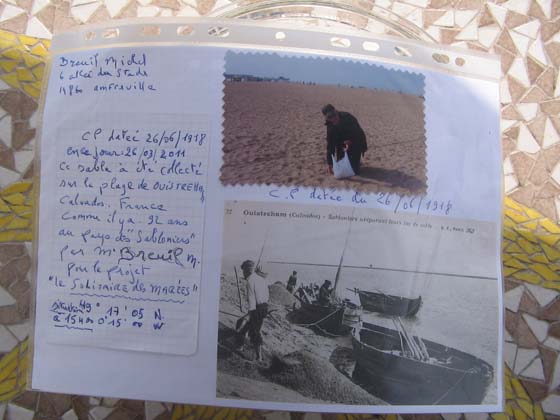 Breuil Michel
6 allée du Stade
14860 amfreville
C.P datée 26/06/1918
en ce jour: 26/03/2011
Ce sable à été collecté
sur la plage de OUISTREHAM
Calvados. France
Comme il y a. 92 ans
au pays des "Sabloniers"
par Mr Breuil M.
pour le projet
"le Sablier des MARÉES"
49° 17' 05 N
à 15h00 0°15' 00 W
C.P datée du 26/06/1918
Ouistreham (Calvados) - Sabloniers